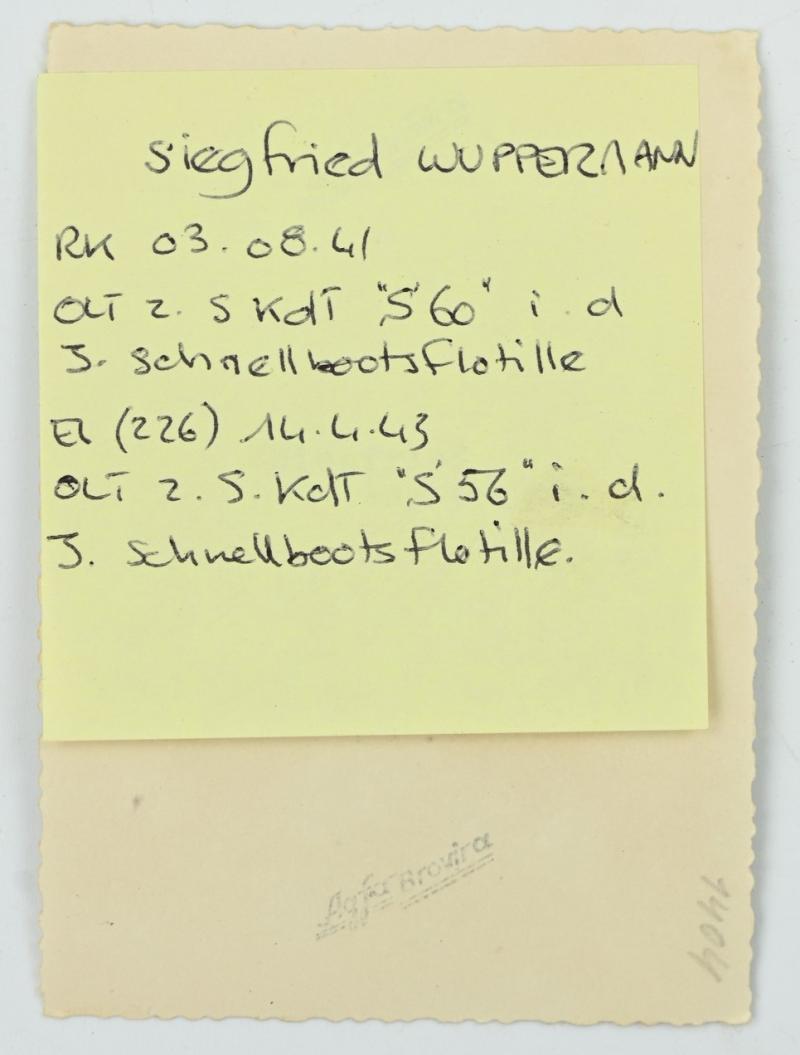 Siegfried WUPPERMANN
RK 03.08.41
OLT z. S KdT "S 60" i. d
3. Schnellbootsflotille
EL (226) 14.4.43
OLT z. S. KdT "S 56" i. d.
3. Schnellbootsflotille.
Agfa Brovira
1404